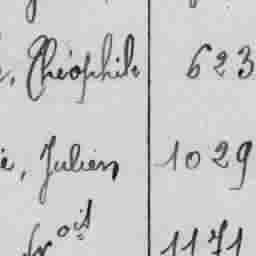 , Théophile 623
e, Julien 1029
frois 1171